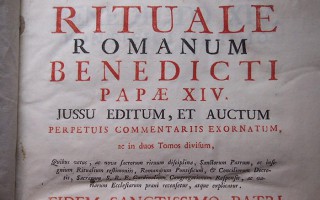 RITUALE
ROMANUM
BENEDICTI
PAPÆ XIV.
JUSSU EDITUM, ET AUCTUM
PERPETUIS COMMENTARIIS EXORNATUM,
ac in duos Tomos divisum,
Quibus vetus, ac nova sacrorum rituum disciplina, Sanctorum Patrum, ac
Ritualium testimoniis, Romanorum Pontificum, & Conciliorum
Sacrarum S. R. E. Congregationum ac
Ecclesiarum praxi recensetur, atque explicatur,
EIDEM SANCTISSIMO PATRI